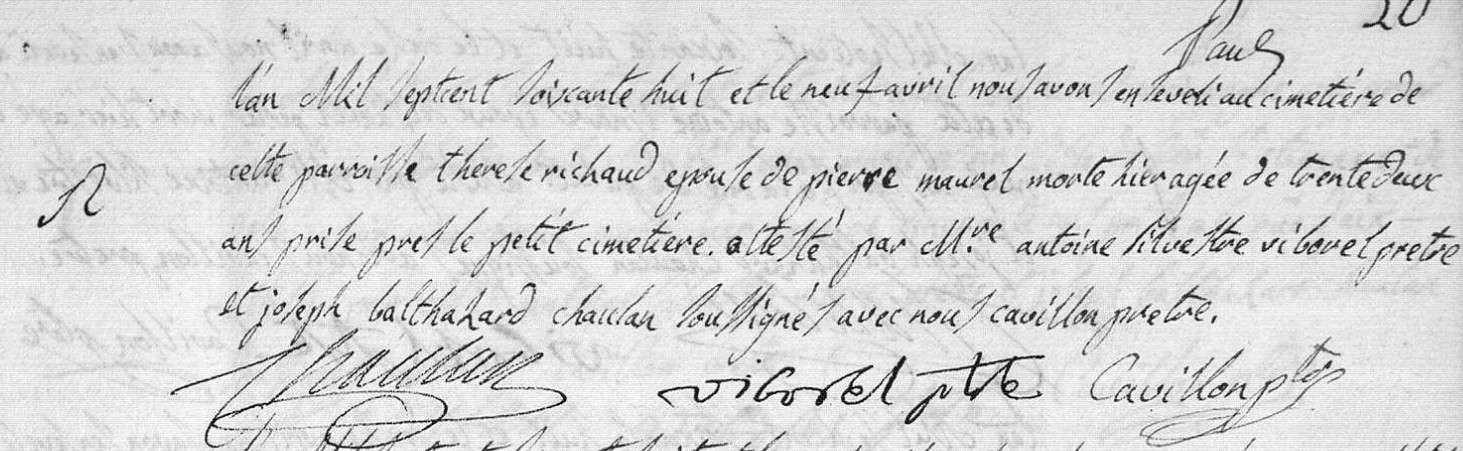 20
Paul
L'an Mil septcent soixante huit et le neuf avril nous avons enseveli au cimetiére de
cette parroisse therese richaud epouse de pierre maurel morte hier agée de trente deux
R
ans prise pres le petit cimetiére. attesté par M.re antoine silvestre viborel pretre
et joseph balthazard chaulan soussignés avec nous cavillon pretre.
Chaulan viborel ptre Cavillon ptre